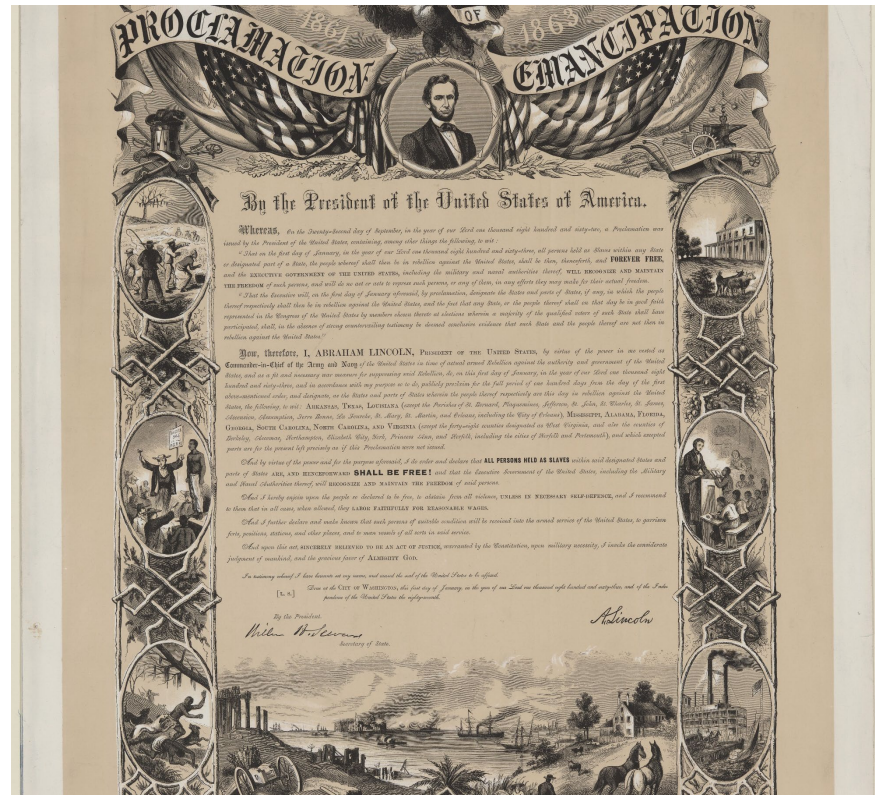 1861 OF 1863
PROCLAMATION EMANCIPATION
By the President of the United States of America.
Whereas, On the Twenty-Second day of September, in the year of our Lord one thousand eight hundred and sixty-two, a Proclamation was
issued by the President of the United States, containing, among other things the following, to wit:
"That on the first day of January, in the year of our Lord one thousand eight hundred and sixty-three, all persons held as Slaves within any State
or designated part of a State, the people whereof shall then be in rebellion against the United States, shall be then, thenceforth, and FOREVER FREE,
and the EXECUTIVE GOVERNMENT OF THE UNITED STATES, including the military and naval authorities thereof, WILL RECOGNIZE AND MAINTAIN
THE FREEDOM of such persons, and will do no act or acts to repress such persons, or any of them, in any efforts they may make for their actual freedom.
"That the Executive will, on the first day of January aforesaid, by proclamation, designate the States and parts of States, if any, in which the people
thereof respectively shall then be in rebellion against the United States, and the fact that any State, or the people thereof shall on that day be in good faith
represented in the Congress of the United States by members chosen thereto at elections wherein a majority of the qualified voters of such State shall have
participated, shall, in the absence of strong countervailing testimony be deemed conclusive evidence that such State and the people thereof are not then in
rebellion against the United States."
Now, therefore, I, ABRAHAM LINCOLN, PRESIDENT OF THE UNITED STATES, by virtue of the power in me vested as
Commander-in-Chief of the Army and Navy of the United States in time of actual armed Rebellion against the authority and government of the United
States, and as a fit and necessary war measure for suppressing said Rebellion, do, on this first day of January, in the year of our Lord one thousand eight
hundred and sixty-three, and in accordance with my purpose so to do, publicly proclaim for the full period of one hundred days from the day of the first
above-mentioned order, and designate, as the States and parts of States wherein the people thereof respectively are this day in rebellion against the United
States, the following, to wit: ARKANSAS, TEXAS, LOUISIANA (except the Parishes of St. Bernard, Plaquemines, Jefferson, St. John, St. Charles, St. James,
Ascension, Assumption, Terre Bonne, La Fourche, St. Mary, St. Martin, and Orleans, including the City of Orleans), MISSISSIPPI, ALABAMA, FLORIDA,
GEORGIA, SOUTH CAROLINA, NORTH CAROLINA, AND VIRGINIA (except the forty-eight counties designated as West Virginia, and also the counties of
Berkeley, Accomac, Northampton, Elizabeth City, York, Princess Ann, and Norfolk, including the cities of Norfolk and Portsmouth), and which excepted
parts are for the present left precisely as if this Proclamation were not issued.
And by virtue of the power and for the purpose aforesaid, I do order and declare that ALL PERSONS HELD AS SLAVES within said designated States and
parts of States ARE, AND HENCEFORWARD SHALL BE FREE! and that the Executive Government of the United States, including the Military
and Naval Authorities thereof, will RECOGNIZE AND MAINTAIN THE FREEDOM of said persons.
And I hereby enjoin upon the people so declared to be free, to abstain from all violence, UNLESS IN NECESSARY SELF-DEFENCE, and I recommend
to them that in all cases, when allowed, they LABOR FAITHFULLY FOR REASONABLE WAGES.
And I further declare and make known that such persons of suitable condition will be received into the armed service of the United States, to garrison
forts, positions, stations, and other places, and to man vessels of all sorts in said service.
And upon this act, SINCERELY BELIEVED TO BE AN ACT OF JUSTICE, warranted by the Constitution, upon military necessity, I invoke the considerate
judgment of mankind, and the gracious favor of ALMIGHTY GOD.
In testimony whereof I have hereunto set my name, and caused the seal of the United States to be affixed.
Done at the CITY OF WASHINGTON, this first day of January, in the year of our Lord one thousand eight hundred and sixty-three, and of the Inde-
[L. S.] pendence of the United States the eighty-seventh.
By the President.
A. Lincoln
William H. Seward
Secretary of State.